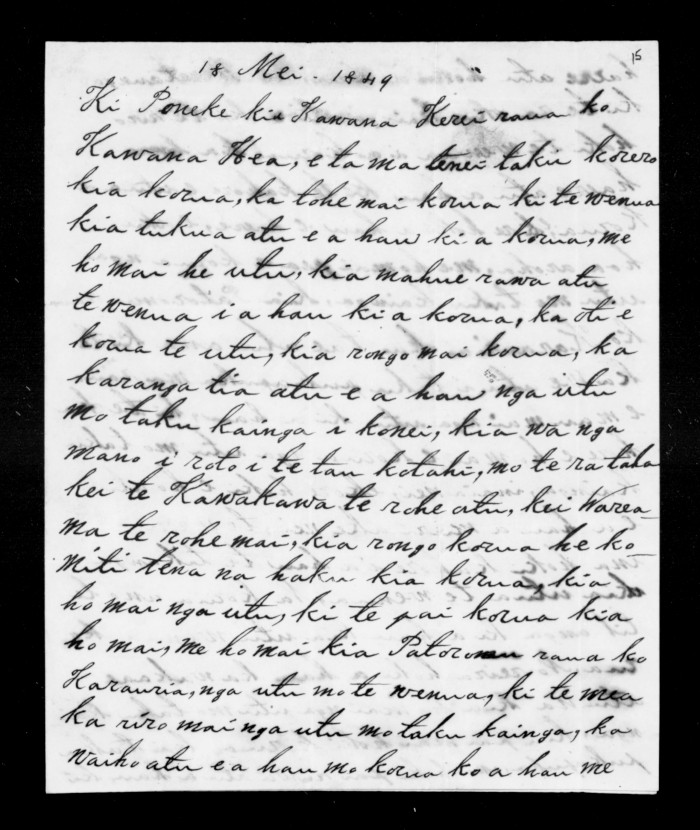 15
18 Mei. 1849
Ki Poneke kia Kawana Kerei raua ko
Kawana Hea, e ta ma tenei taku korero
kia korua, ka tohe mai korua ki te wenua
kia tukua atu e a hau ki a korua, me
ho mai he utu, kia mahue rawa atu
te wenua i a hau ki a korua, ka oti e
korua te utu, kia rongo mai korua, ka
karanga tia atu e a hau nga utu
mo taku kainga i konei, kia wa nga
mano i roto i te tau kotahi, mo te ra taha
kei te Kawakawa te rohe atu, kei Warea-
ma te rohe mai, kia rongo korua he ko-
miti tena na haku kia korua, kia
ho mai nga utu, ki te pai korua kia
ho mai, me ho mai kia raua ko
Karauria, nga utu mo te wenua, ki te mea
ka riro mai nga utu mo taku kainga, ka
waiho atu e a hau mo korua ko a hau me